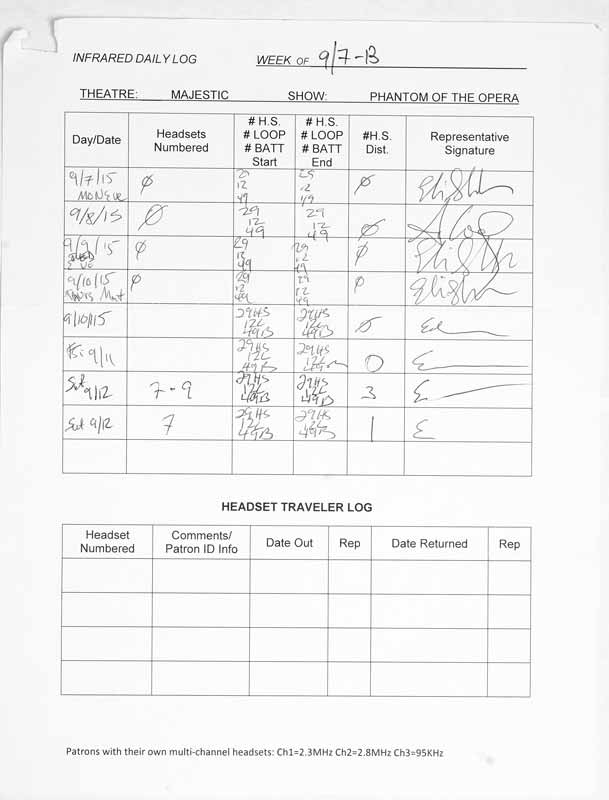 INFRARED DAILY LOG WEEK OF 9/7-13
THEATRE: MAJESTIC SHOW: PHANTOM OF THE OPERA
Day/Date Headsets Numbered # H.S. # LOOP # BATT Start # H.S. # LOOP # BATT End #H.S. Dist. Representative Signature
9/7/15 Ø 29 12 49 29 12 49 Ø
9/8/15 Ø 29 12 49 29 12 49 Ø
9/9/15 Ø 29 12 49 29 12 49 Ø
9/10/15 Ø 29 12 49 29 12 49 Ø
9/10/15 29HS 12L 49B 29HS 12L 49B Ø
Fri 9/11 29HS 12L 49B 29HS 12L 49B 0 E
Sat 9/12 7-9 29HS 12L 49B 29HS 12L 49B 3 E
Sat 9/12 7 29HS 12L 49B 29HS 12L 49B 1 E
HEADSET TRAVELER LOG
Headset Numbered Comments/ Patron ID Info Date Out Rep Date Returned Rep
Patrons with their own multi-channel headsets: Ch1=2.3MHz Ch2=2.8MHz Ch3=95KHz